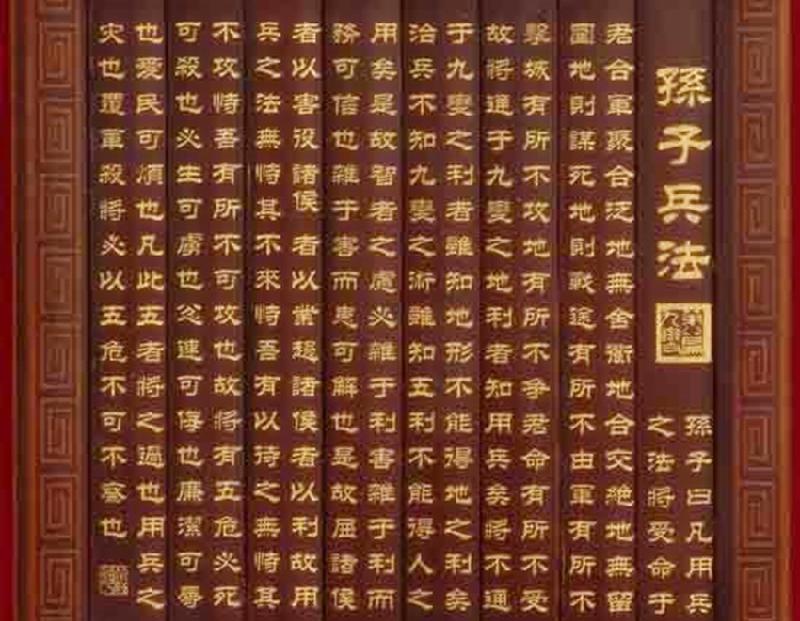 孫子兵法
孫子曰凡用兵
之法將受命于
君合軍聚合泛地無舍衢地合交絕地無留
圍地則謀死地則戰途有所不由軍有所不
擊城有所不攻地有所不爭君命有所不受
故將通于九變之地利者知用兵矣將不通
于九變之利者雖知地形不能得地之利矣
治兵不知九變之術雖知五利不能得人之
用矣是故智者之慮必雜于利害雜于利而
務可信也雜于害而患可解也是故屈諸侯
者以害役諸侯者以業趨諸侯者以利故用
兵之法無恃其不來恃吾有以待之無恃其
不攻恃吾有所不可攻也故將有五危必死
可殺也必生可虜也忿速可侮也廉潔可辱
也愛民可煩也凡此五者將之過也用兵之
灾也覆軍殺將必以五危不可不察也